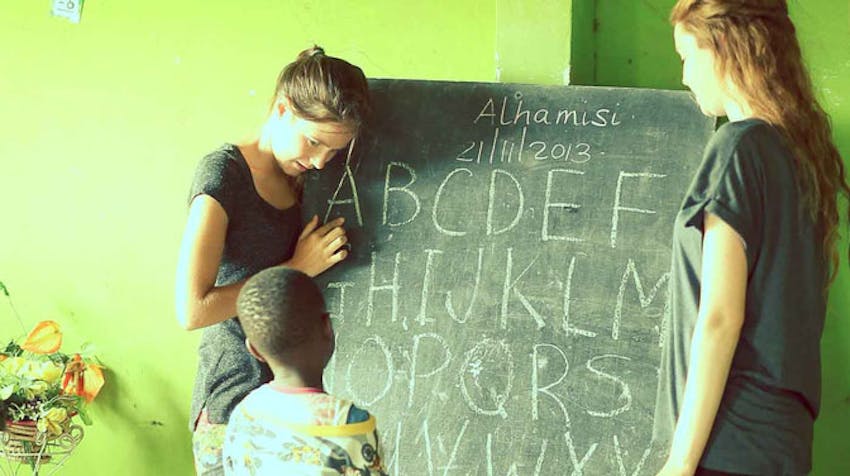 Alhamisi
21/11/2013
A B C D E F
H I J K L M
O P Q R S
W X Y